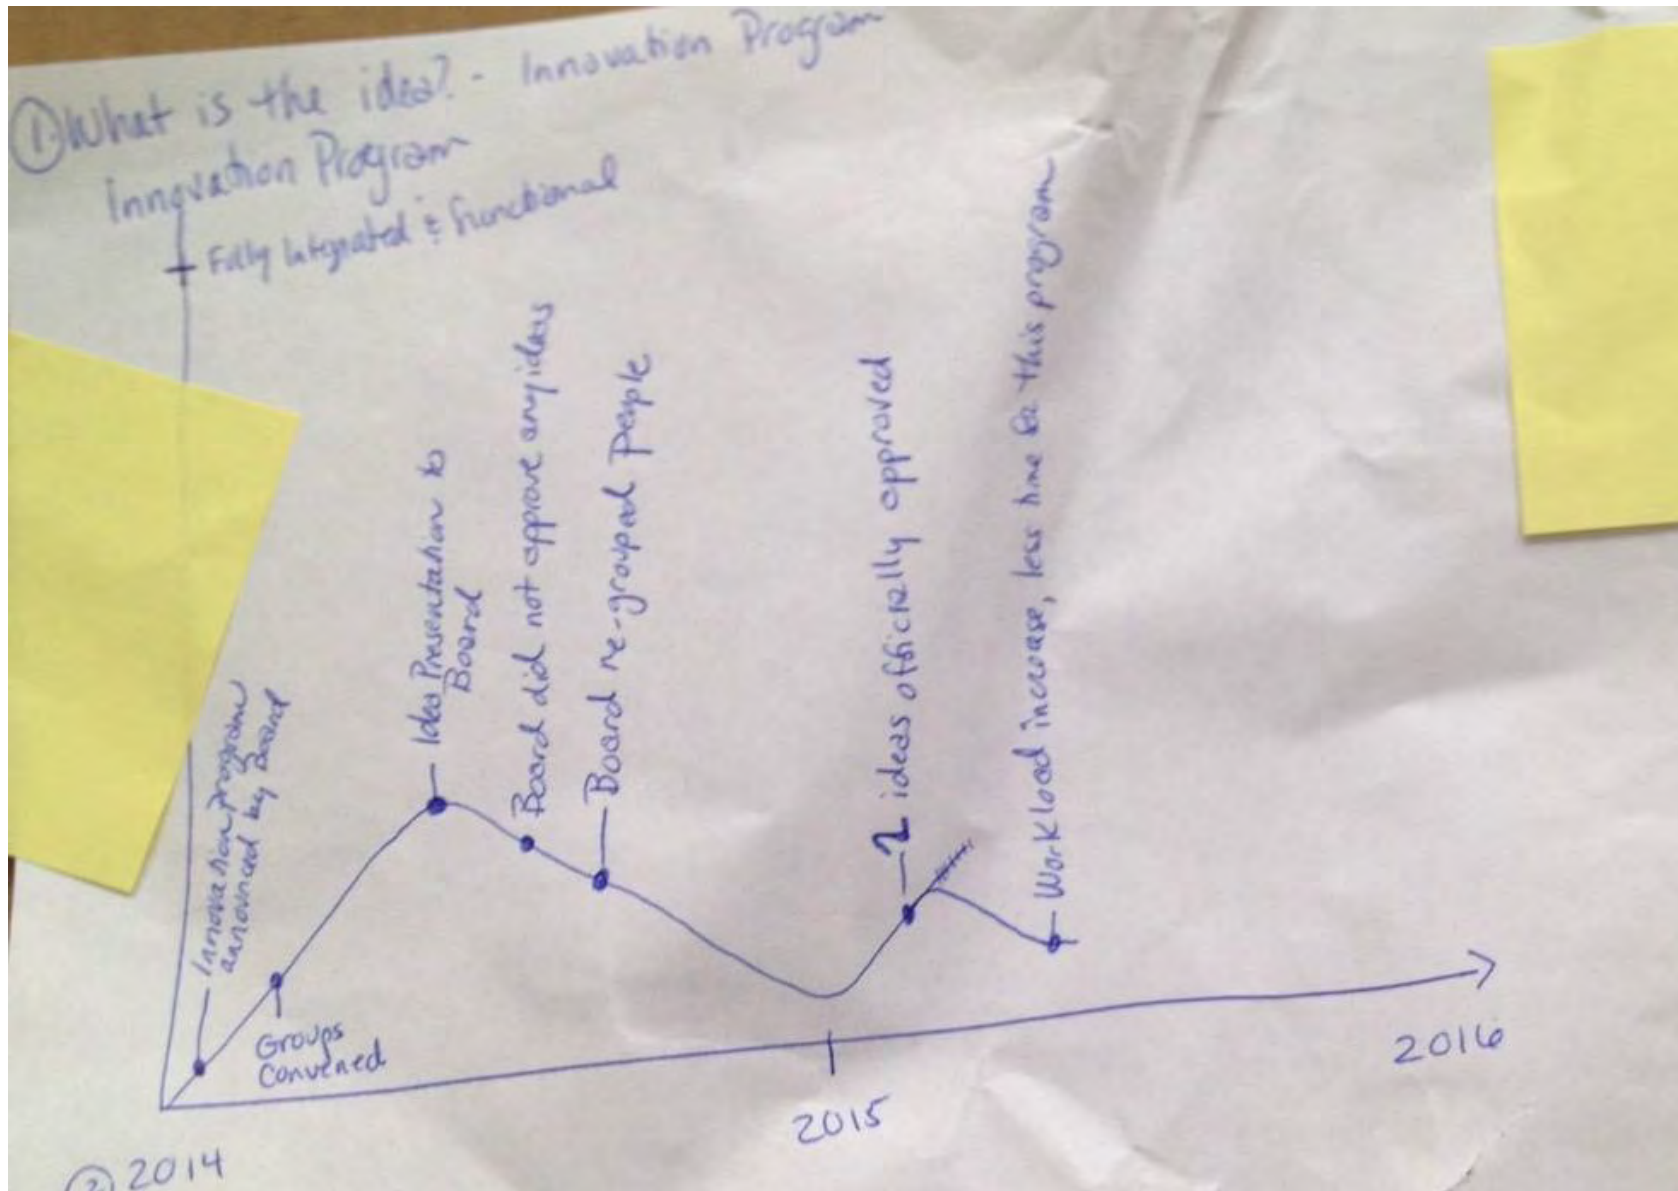 ① What is the idea? - Innovation Program
Innovation Program
Fully Integrated & functional
Innovation program
announced by Board
Groups
Convened
Idea Presentation to
Board
Board did not approve any ideas
Board re-grouped people
2 ideas officially approved
Workload increase, less time for this program
② 2014
2015
2016